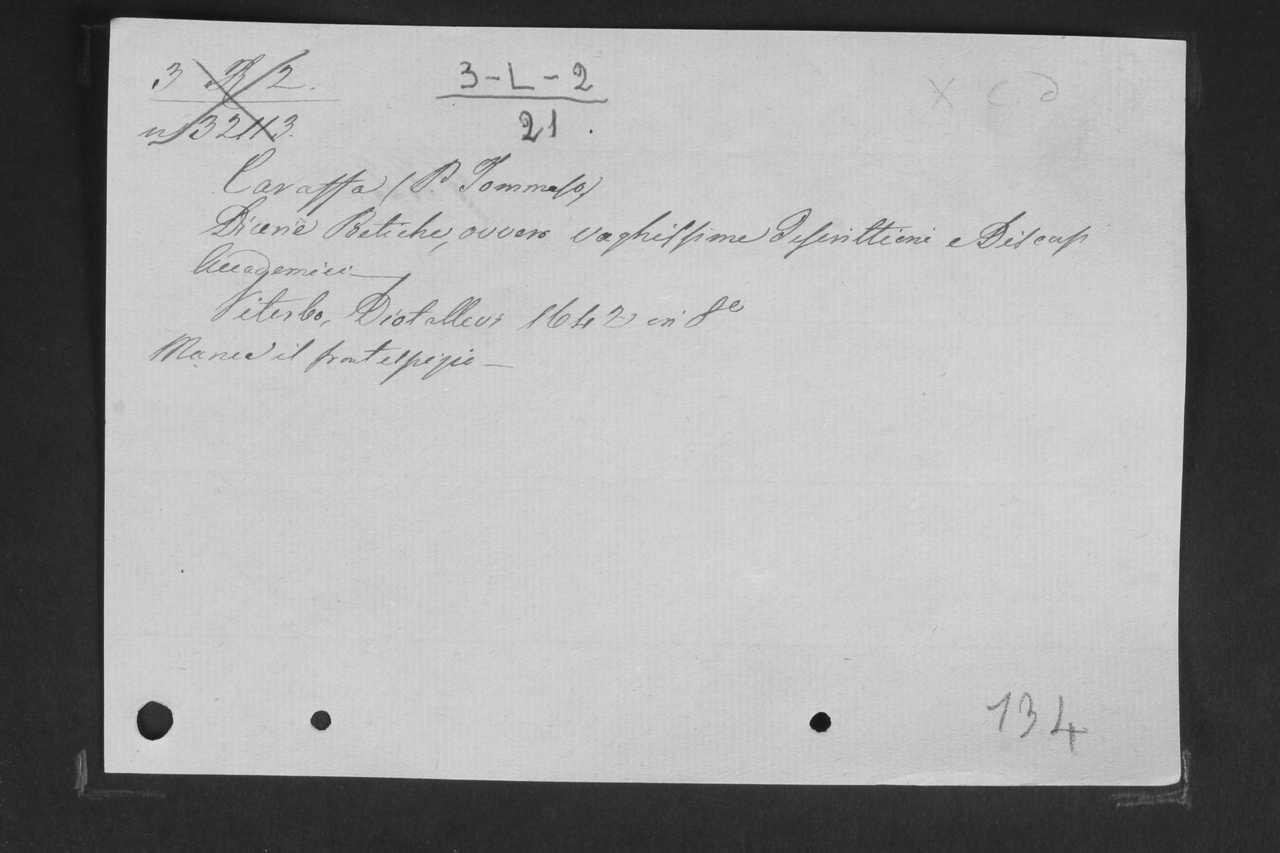 3 R 2.
n 32113.
3-L-2
21.
X
Caraffa (P. Tommaso)
Dicerie Poetiche, ovvero vaghissime descrittioni e Discorsi
Accademici
Viterbo, Diotallevi 1642 in 8º
Manca il frontespizio
134